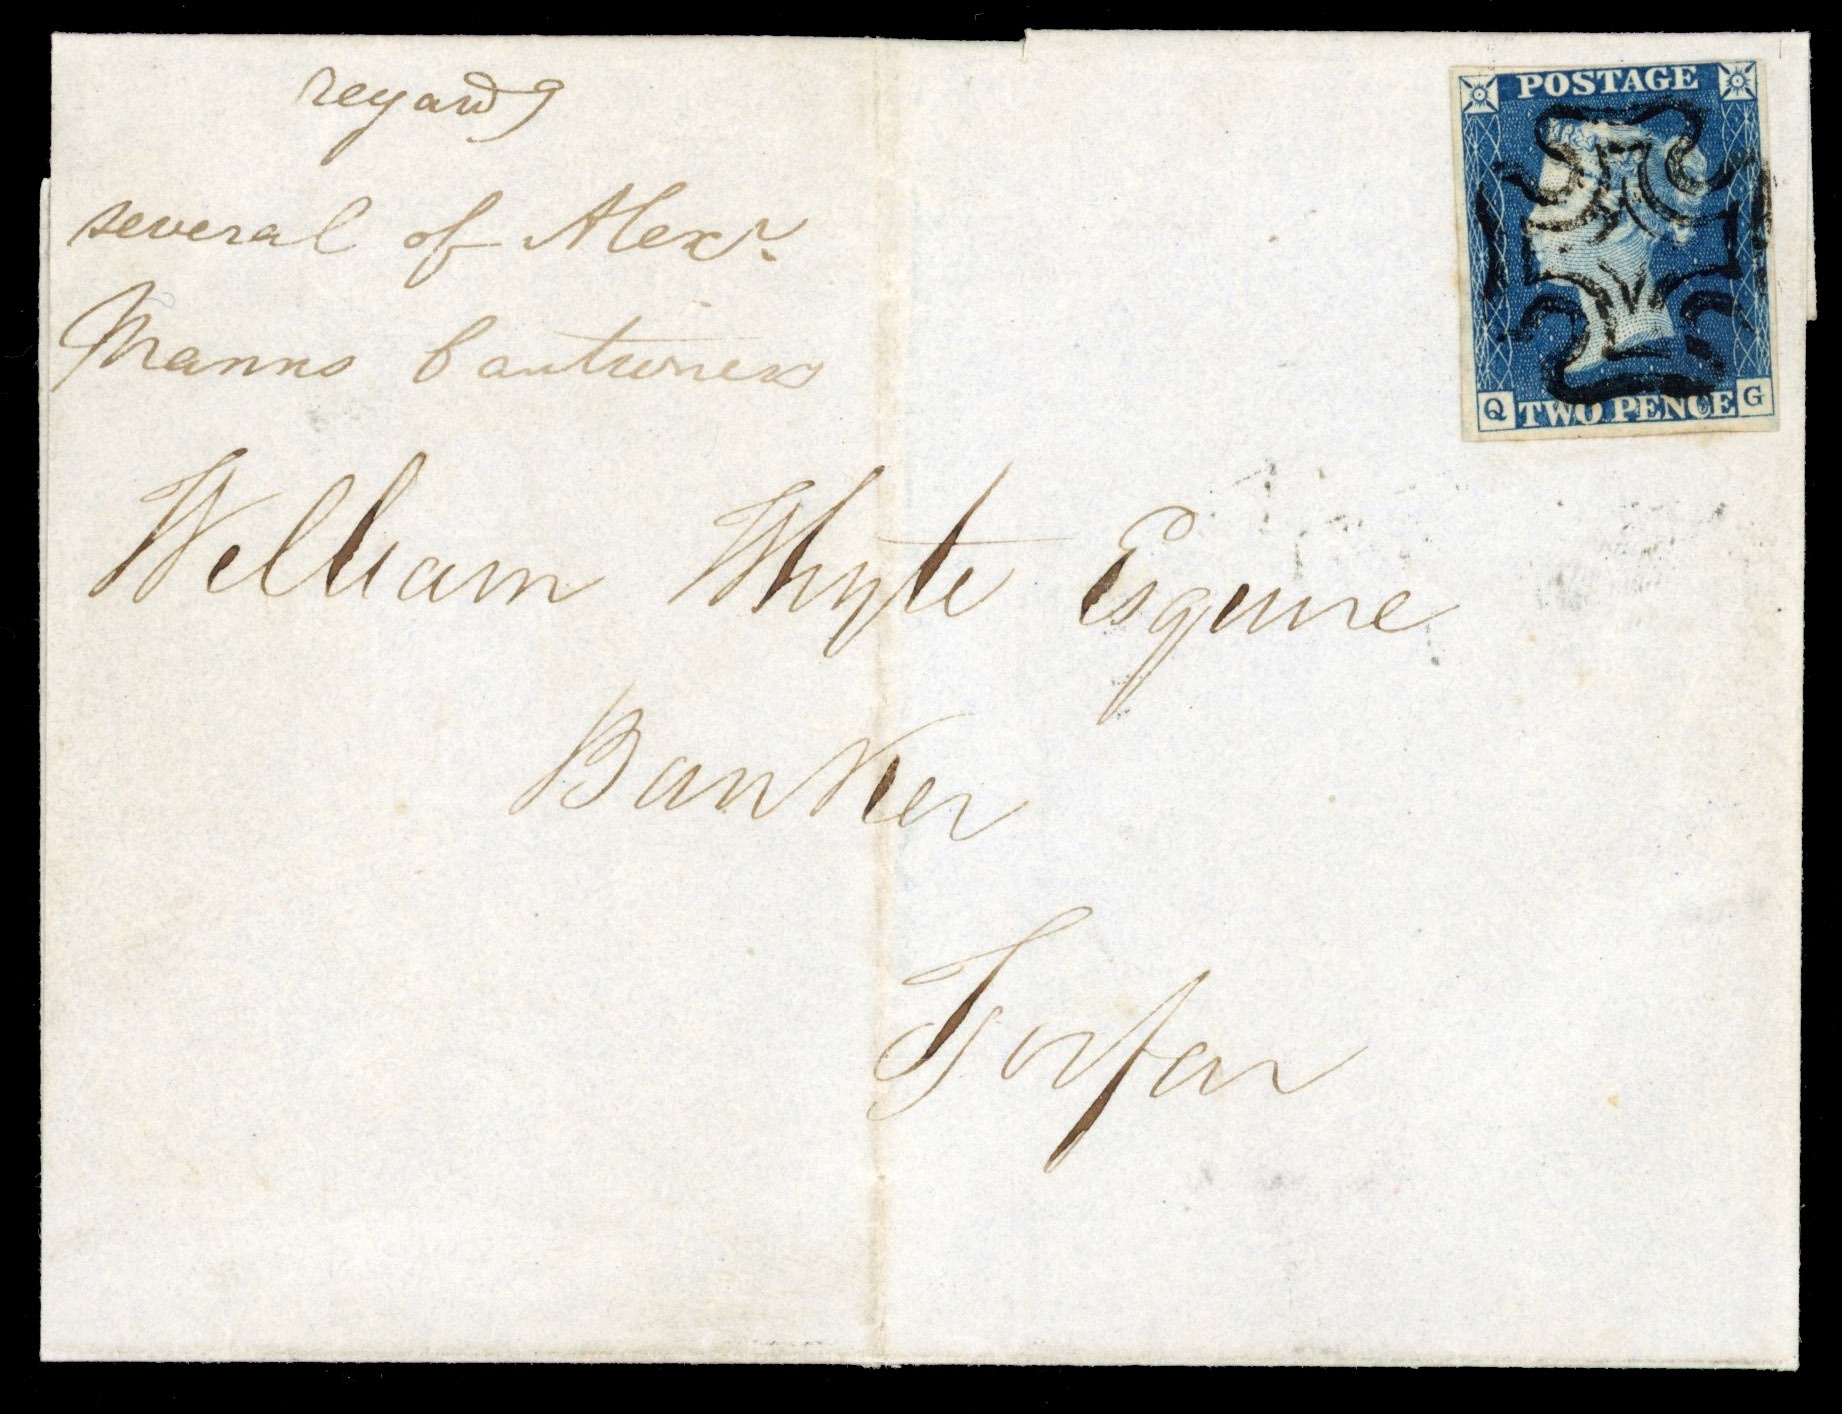 regardg
several of Alexr.
Manns Cautioners
William Whyte Esquire
Banker
Forfar
POSTAGE
Q TWO PENCE G